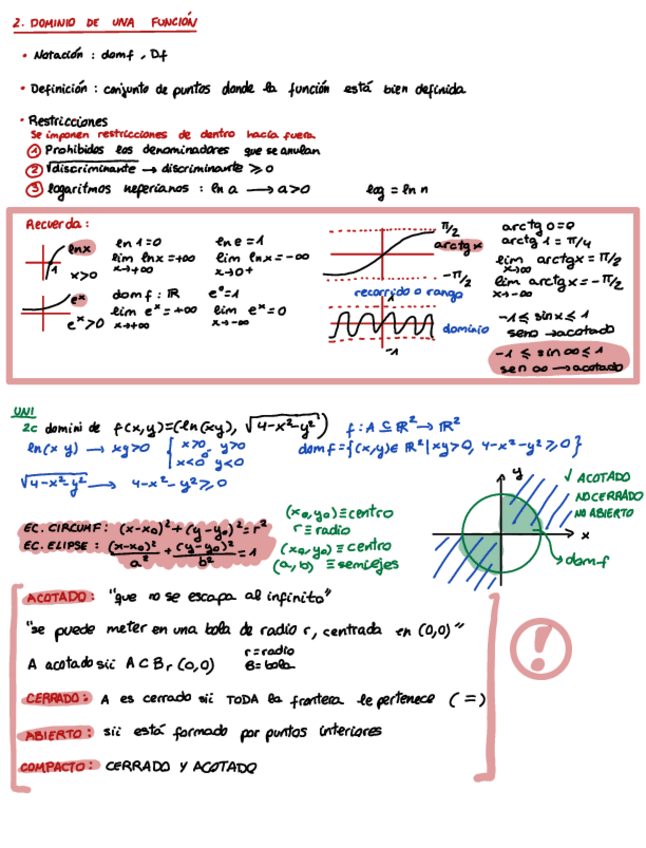 2. DOMINIO DE UNA FUNCIÓN
• Notación : domf , Df
• Definición : conjunto de puntos donde la función está bien definida
• Restricciones
Se imponen restricciones de dentro hacia fuera.
① Prohibidos los denominadores que se anulan
② √discriminante → discriminante ≥ 0
③ logaritmos neperianos : ln a → a>0 log = ln n
Recuerda :
lnx
1
x>0
ln 1 = 0 ln e = 1
lim lnx = +∞ lim lnx = -∞
x→+∞ x→0+
e^x
e^x>0
domf : ℝ e° = 1
lim e^x = +∞ lim e^x = 0
x→+∞ x→-∞
π/2
arctg x
-π/2
recorrido o rango
1
dominio
-1
arctg 0 = 0
arctg 1 = π/4
lim arctgx = π/2
x→∞
lim arctgx = -π/2
x→-∞
-1 ≤ sinx ≤ 1
seno → acotado
-1 ≤ sin ∞ ≤ 1
sen ∞ → acotado
UNI
2c domini de f(x,y)=(ln(xy), √4-x²-y²) f : A ⊆ ℝ² → ℝ²
ln(x y) → xy>0 { x>0 y>0 o x<0 y<0
domf = {(x,y)∈ ℝ² | xy>0, 4-x²-y² ≥ 0}
√4-x²-y² → 4-x²-y² ≥ 0
y
x
√ ACOTADO
NO CERRADO
NO ABIERTO
domf
EC. CIRCUMF : (x-x₀)² + (y-y₀)² = r²
(x₀,y₀) ≡ centro
r ≡ radio
EC. ELIPSE : (x-x₀)²/a² + (y-y₀)²/b² = 1
(x₀,y₀) ≡ centro
(a,b) ≡ semiejes
ACOTADO : "que no se escapa al infinito"
"se puede meter en una bola de radio r, centrada en (0,0)"
A acotado sii A ⊂ Br (0,0) r = radio
B = bola
CERRADO : A es cerrado sii TODA la frontera le pertenece ( = )
ABIERTO : sii está formado por puntos interiores
COMPACTO : CERRADO Y ACOTADO
!